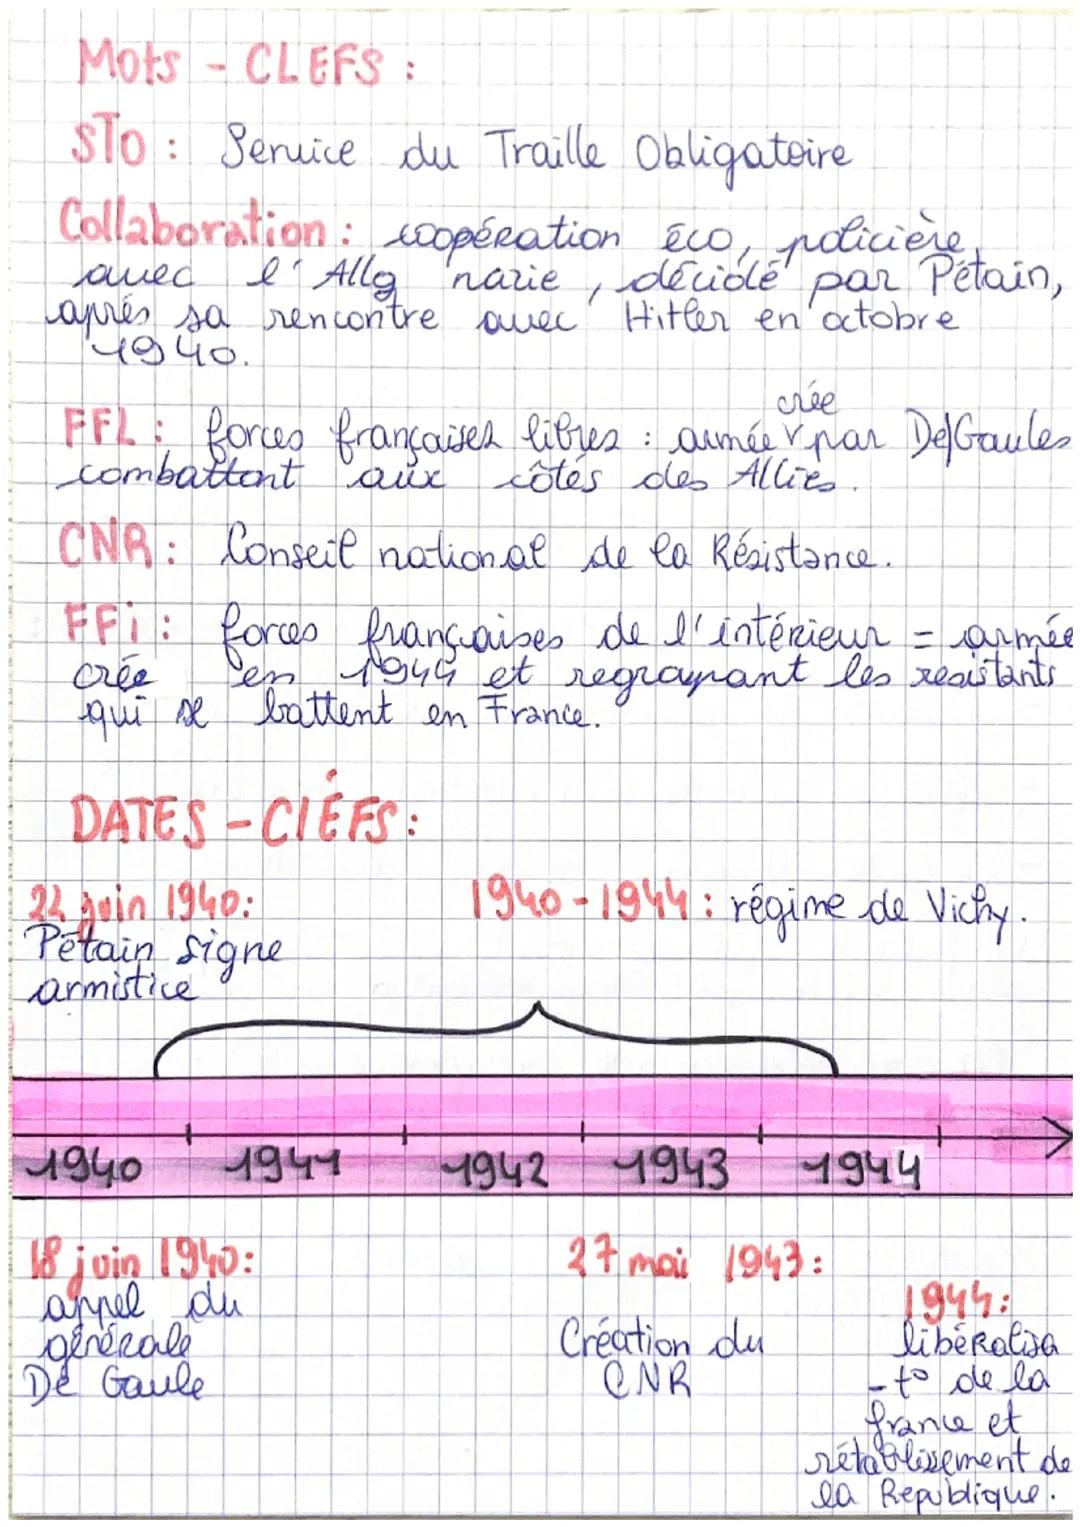 Mots - CLEFS :
STO : Service du Traille Obligatoire
Collaboration : coopération éco, policière,
avec l'Allg nazie, décidé par Pétain,
après sa rencontre avec Hitler en octobre
1940.
crée
FFL : forces françaises libres : armée v par De/Gaules
combattant aux côtés des Alliés.
CNR : Conseil national de la Résistance.
FFi : forces françaises de l'intérieur = armée
crée en 1944 et regroupant les resistants
qui se battent en France.
DATES - CLÉFS :
22 juin 1940:
1940-1944 : régime de Vichy.
Pétain signe
armistice
1940 1941 1942 1943 1944
18 juin 1940:
appel du
générale
De Gaule
27 mai 1943 :
Création du
CNR
1944:
libéralisa
-t° de la
france et
rétablissement de
la Republique.